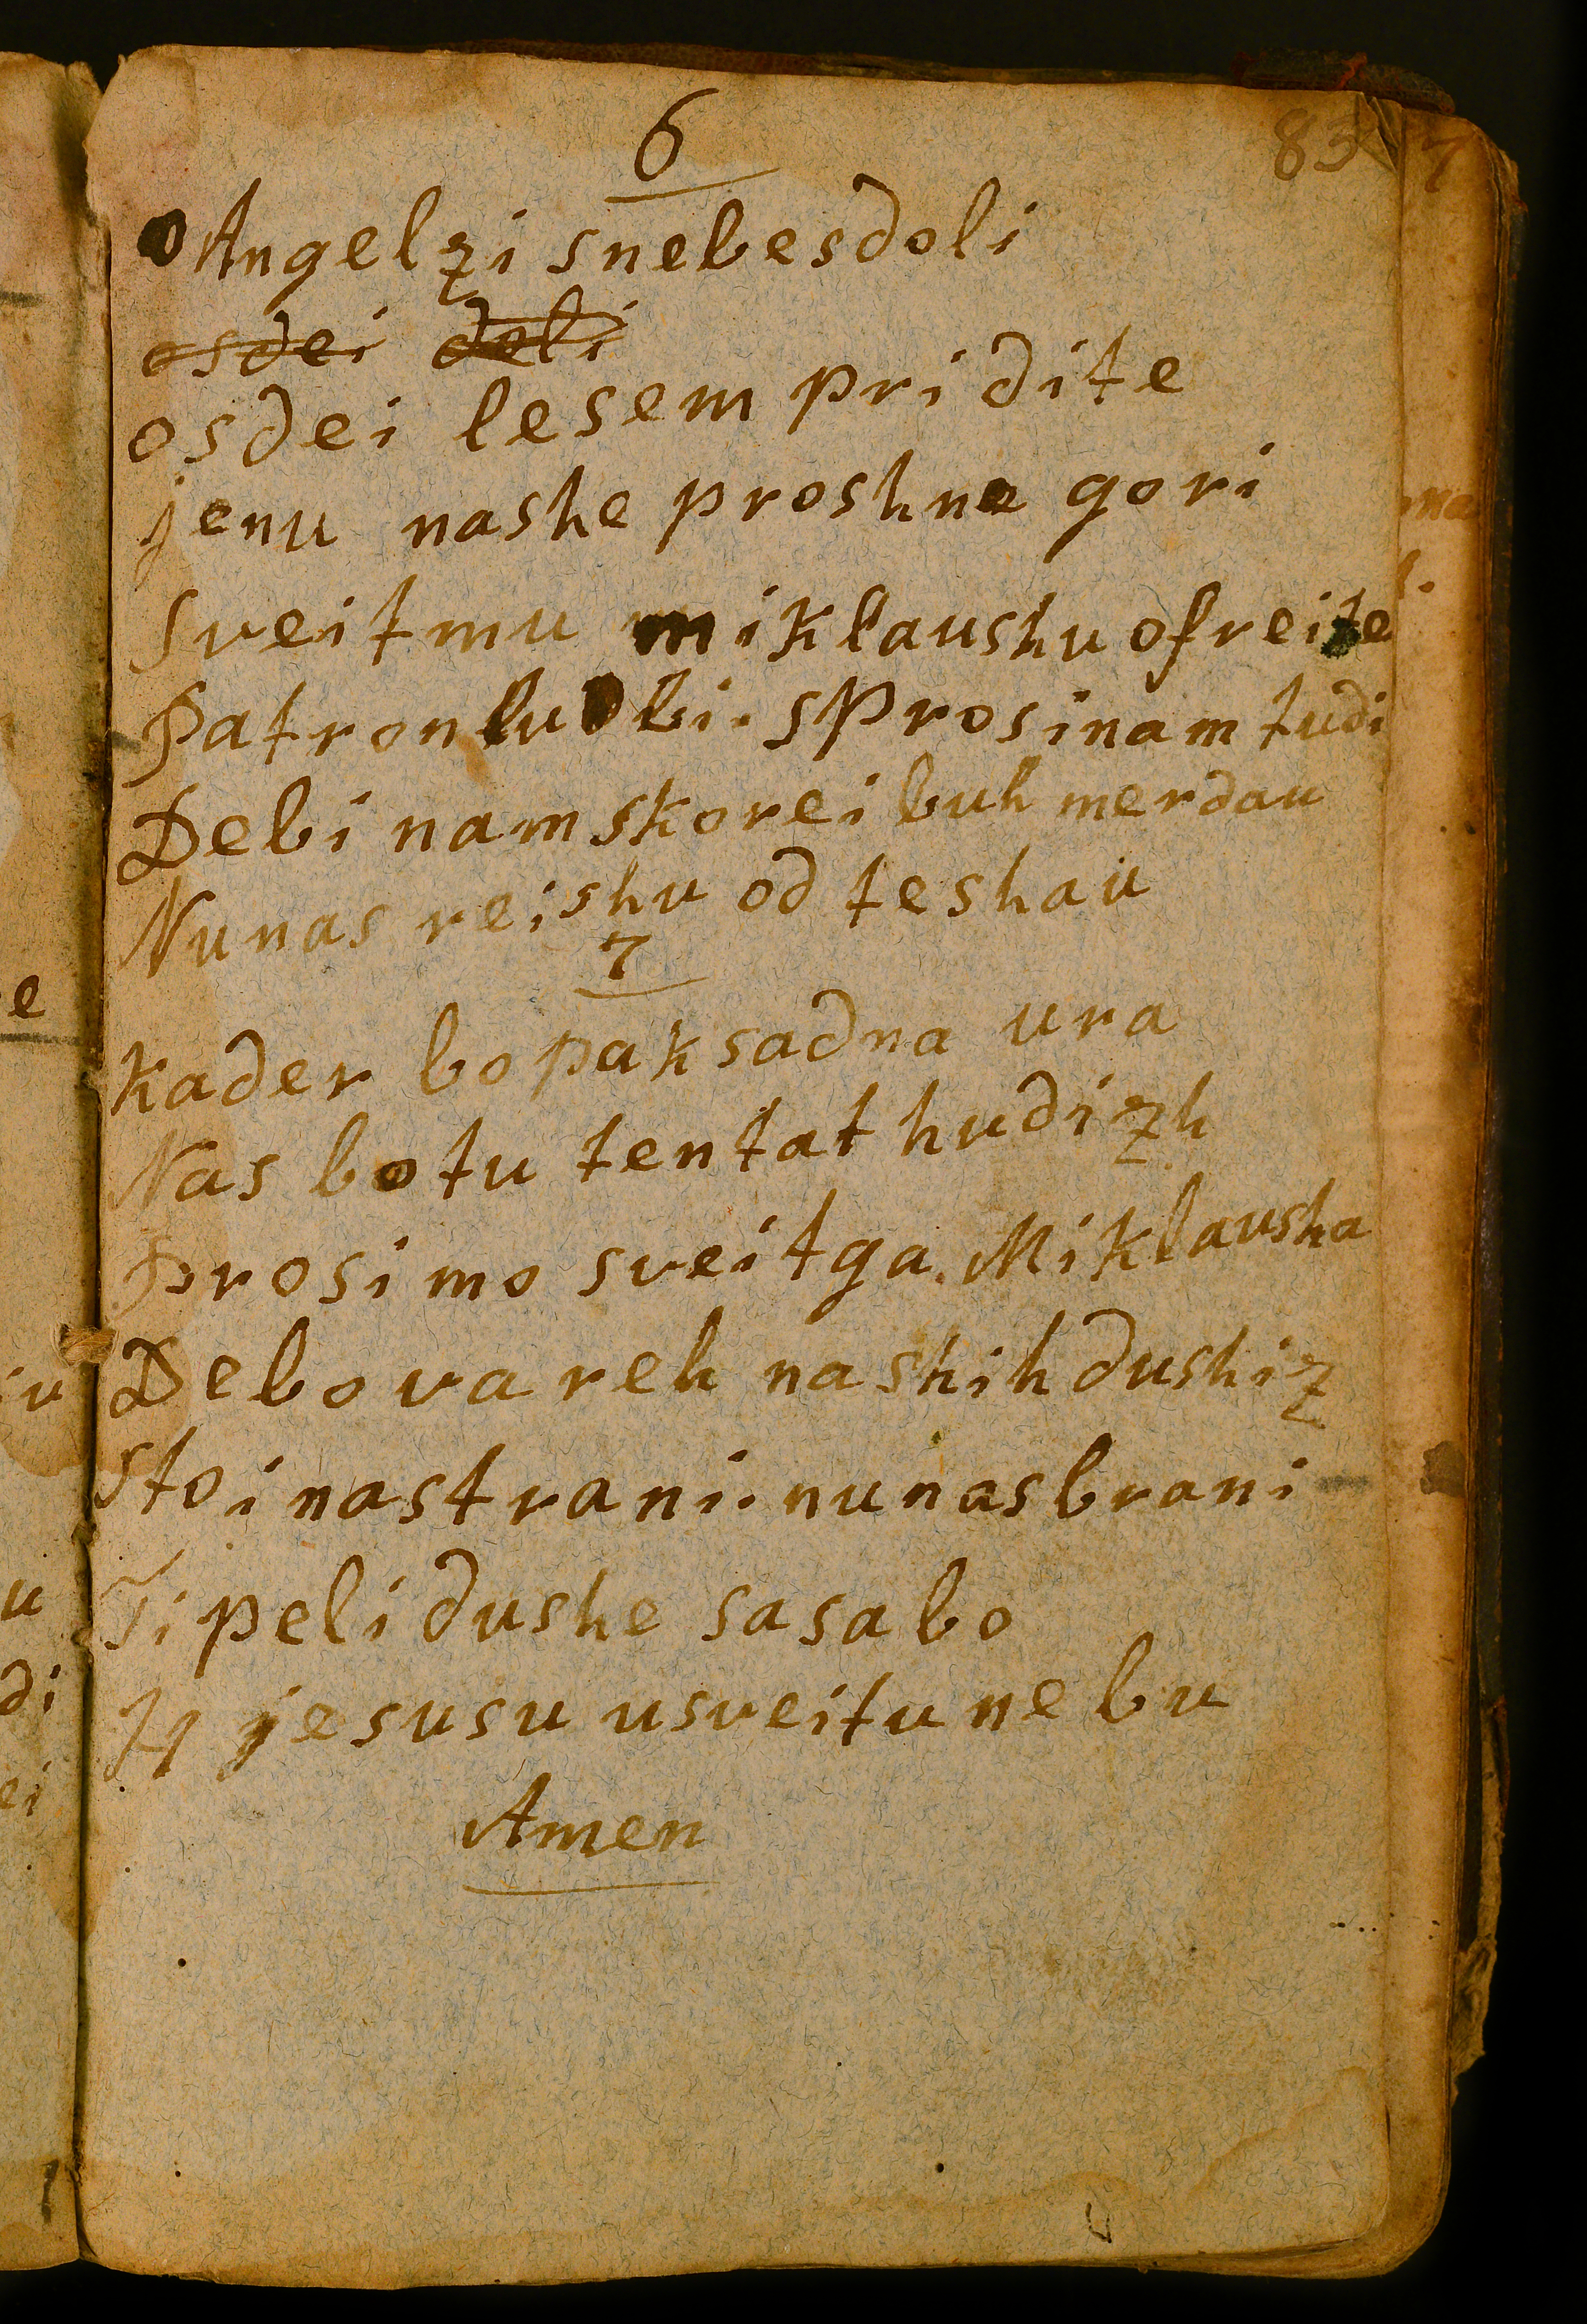 6
83
o Angelzi snebesdoli
osdei doli
osdei lesem pridite
jenu nashe proshne gori
Sveitmu miklaushu ofreite
Patron lubi. sProsinam tudi
Debi nam skorei buh merdau
Nunas reishu od teshau
7
Kader bo pak sadna ura
Nas botu tentat hudizh
Prosimo sveitga. Miklausha
Debovareh nashih dushiz
Stoinastrani. nunasbrani
Tipeli dushe sasabo
H jesusu usveitu nebu
Amen